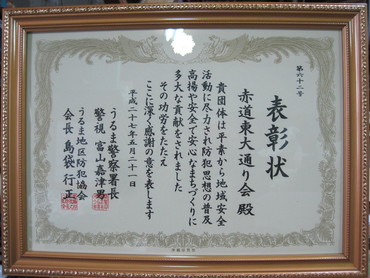 第六十二号
表彰状
赤道東大通り会 殿
貴団体は平素から地域安全
活動に尽力され防犯思想の普及
高揚や安全で安心なまちづくりに
多大な貢献をされました
その功労をたたえ
ここに深く感謝の意を表します
平成二十七年五月二十一日
うるま警察署長
警視 富山嘉津男
うるま地区防犯協会
会長 島袋行正